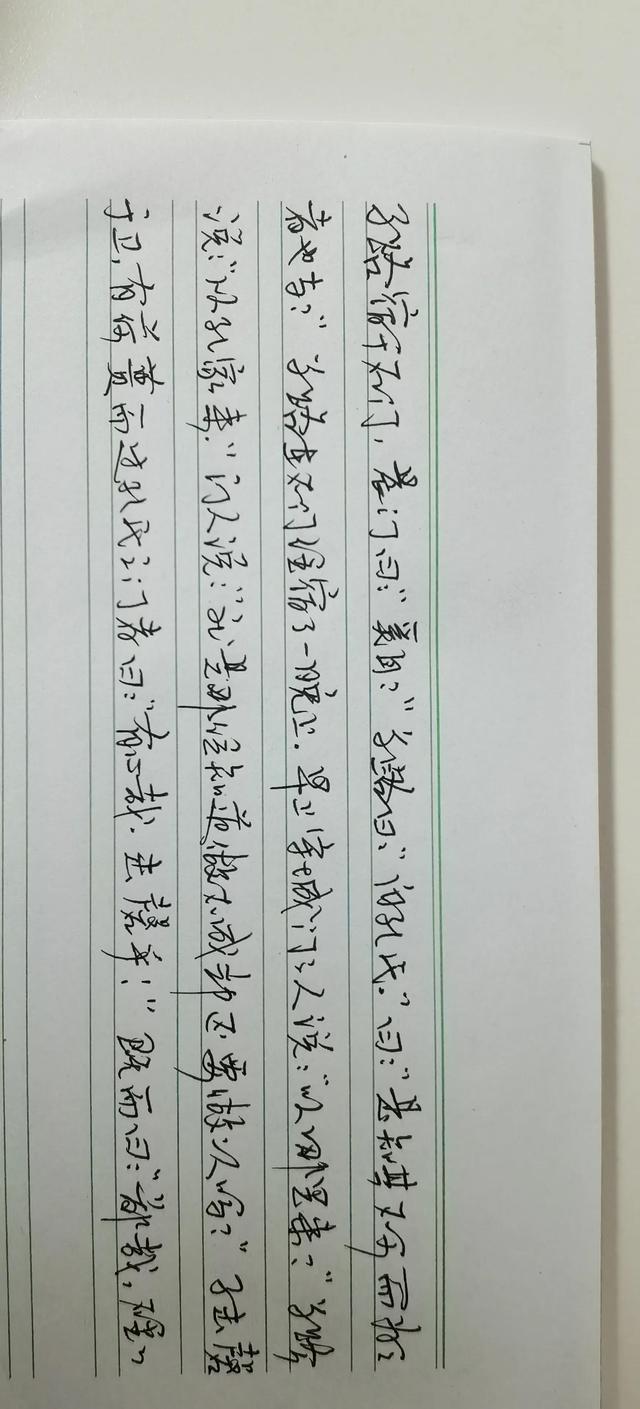 子路宿于石门，晨门曰：“奚自？”子路曰：“自孔氏。”曰：“是知其不可而为之
者也与？”子路在石门住宿了一晚上。早上守城门之人说：“从哪里来？”子路
说：“从孔家来。”门人说：“就是那位知道做不成却还要做之人吗？”子击磬
于卫，有荷蒉而过孔氏之门者曰：“有心哉，击磬乎！”既而曰：“鄙哉，硁硁